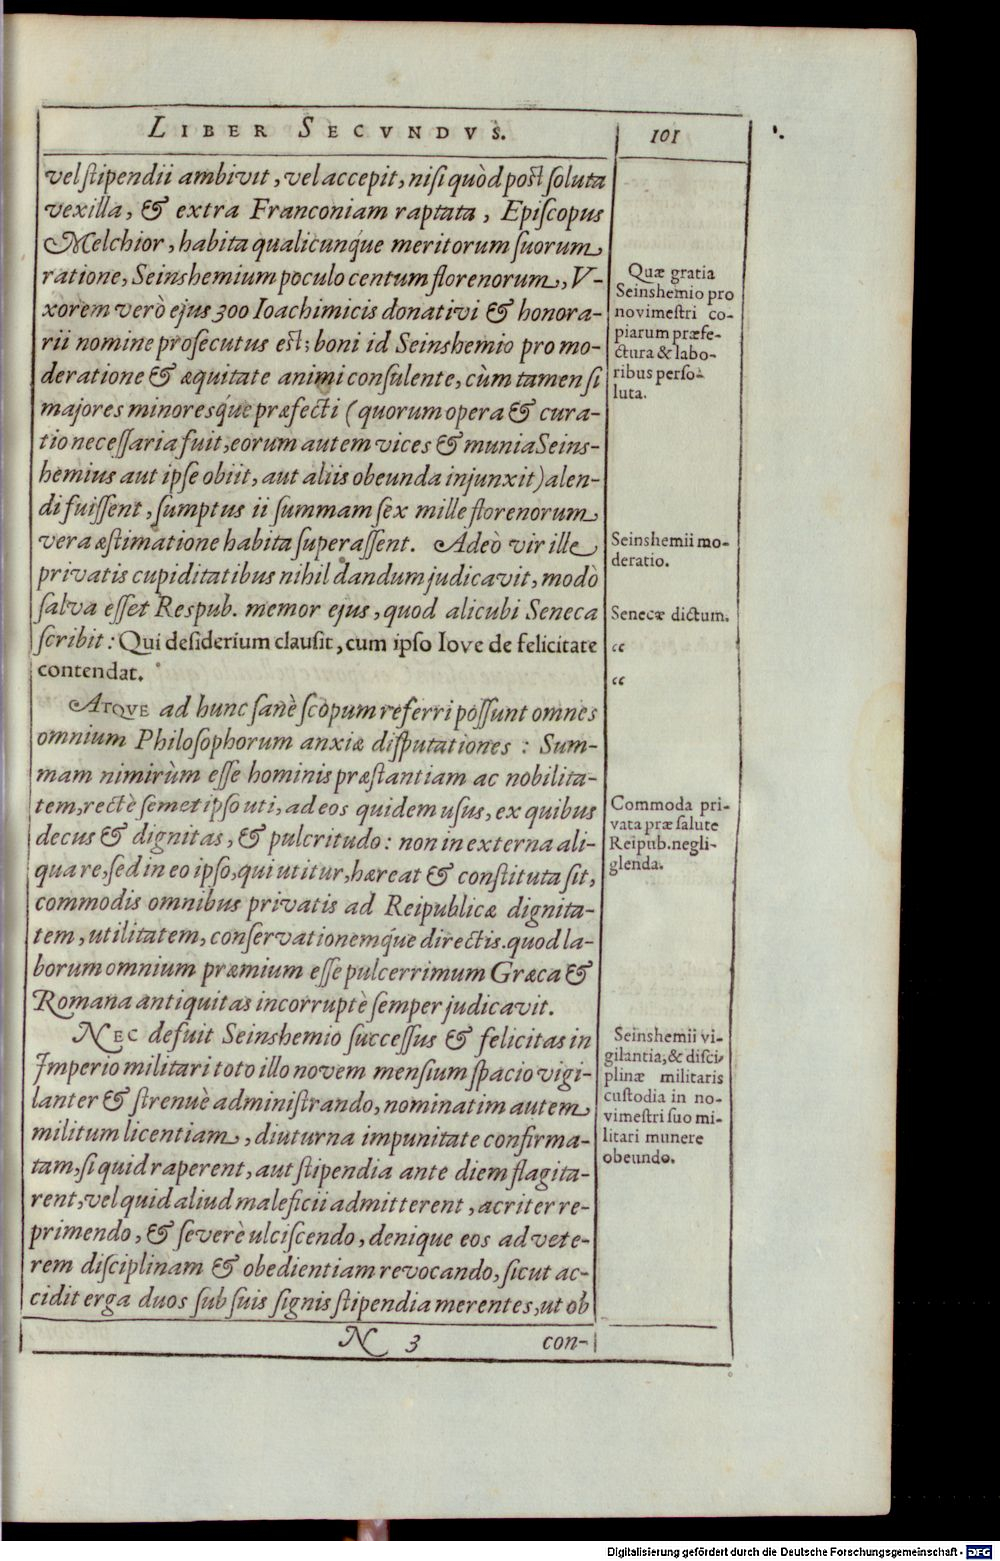 LIBER SECVNDVS. 101
vel stipendii ambivit, vel accepit, nisi quòd post soluta
vexilla, & extra Franconiam raptata, Episcopus
Melchior, habita qualicunque meritorum suorum
ratione, Seinshemium poculo centum florenorum, V-
xorem verò ejus 300 Ioachimicis donativi & honora-
rii nomine prosecutus est; boni id Seinshemio pro mo-
deratione & æquitate animi consulente, cùm tamen si
majores minoresq́ue præfecti (quorum opera & cura-
tio necessaria fuit, eorum autem vices & munia Seins-
hemius aut ipse obiit, aut aliis obeunda injunxit) alen-
di fuissent, sumptus ii summam sex mille florenorum
vera æstimatione habita superassent. Adeò vir ille
privatis cupiditatibus nihil dandum judicavit, modò
salva esset Respub. memor ejus, quod alicubi Seneca
scribit: Qui desiderium clausit, cum ipso Iove de felicitate
contendat.
Quæ gratia
Seinshemio pro
novimestri co-
piarum præfe-
ctura & labo-
ribus perso-
luta.
Seinshemii mo-
deratio.
Senecæ dictum.
“
“
ATQVE ad hunc sanè scopum referri possunt omnes
omnium Philosophorum anxiæ disputationes: Sum-
mam nimirùm esse hominis præstantiam ac nobilita-
tem, rectè semetipso uti, ad eos quidem usus, ex quibus
decus & dignitas, & pulcritudo: non in externa ali-
qua re, sed in eo ipso, qui utitur, hæreat & constituta sit,
commodis omnibus privatis ad Reipublicæ dignita-
tem, utilitatem, conservationemq́ue directis. quod la-
borum omnium præmium esse pulcerrimum Græca &
Romana antiquitas incorruptè semper judicavit.
Commoda pri-
vata præ salute
Reipub. negli-
glenda.
NEC defuit Seinshemio successus & felicitas in
Imperio militari toto illo novem mensium spacio vigi-
lanter & strenuè administrando, nominatim autem
militum licentiam, diuturna impunitate confirma-
tam, si quid raperent, aut stipendia ante diem flagita-
rent, vel quid aliud maleficii admitterent, acriter re-
primendo, & severè ulciscendo, denique eos ad vete-
rem disciplinam & obedientiam revocando, sicut ac-
cidit erga duos sub suis signis stipendia merentes, ut ob
Seinshemii vi-
gilantia, & disci-
plinæ militaris
custodia in no-
vimestri suo mi-
litari munere
obeundo.
N 3 con-
Digitalisierung gefördert durch die Deutsche Forschungsgemeinschaft - DFG